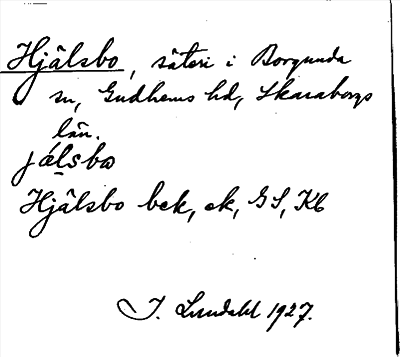 Hjälsbo, säteri i Borgunda
sn, Gudhems hd, Skaraborgs
län.
jálsbω
Hjälsbo bek, ek, GS, Kb
I. Lundahl 1927.